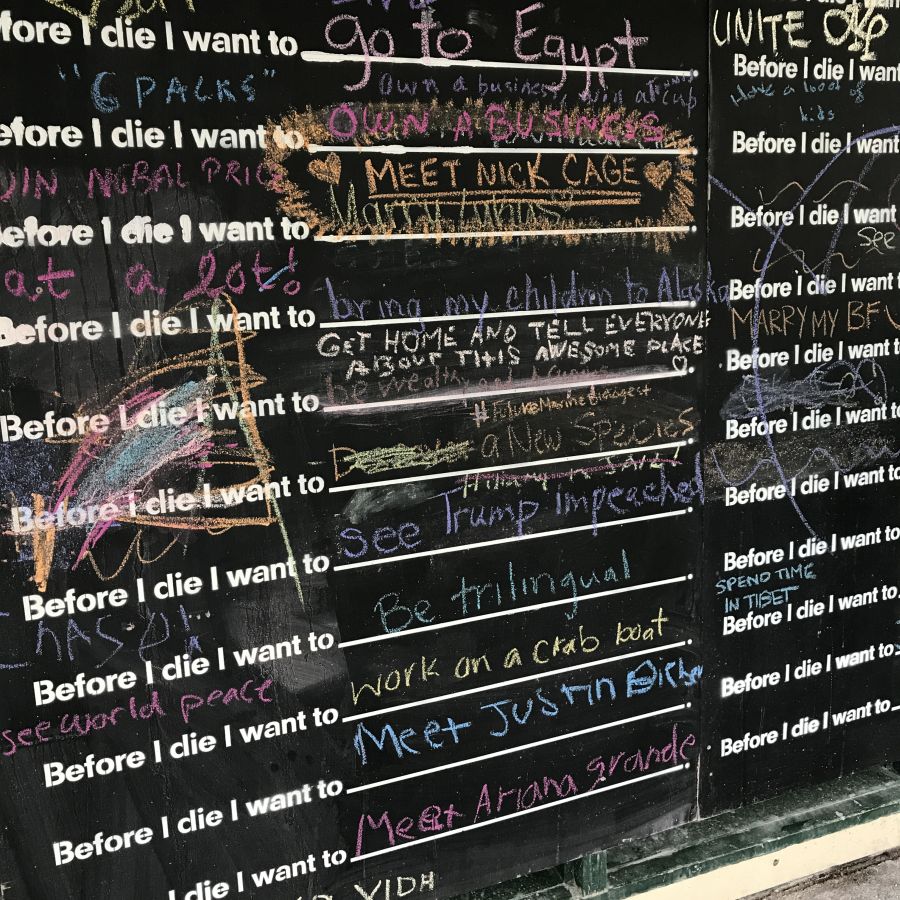 fore I die I want to go to Egypt
"6 PACKS"
Own a business, win a cup
efore I die I want to OWN A BUSINESS
MEET NICK CAGE
WIN NOBAL PRICE
Marry
efore I die I want to
at a lot!
bring my children to Alaska
Before I die I want to
GET HOME AND TELL EVERYONE
ABOUT THIS AWESOME PLACE
be wealthy and
Before I die I want to
#FutureMarineBiologest
a New Species
Before I die I want to
see Trump Impeached
Before I die I want to
Be trilingual
Before I die I want to
work on a crab boat
see world peace
Before I die I want to
Meet Justin Bieber
Before I die I want to
Meet Ariana grande
I die I want to
VIDH
UNITE
Before I die I want
Have a loot of
kids
Before I die I want
Before I die I want
see
Before I die I want
MARRY MY BF
Before I die I want to
Before I die I want to
Before I die I want to
Before I die I want to
SPEND TIME
IN TIBET
Before I die I want to
Before I die I want to
Before I die I want to